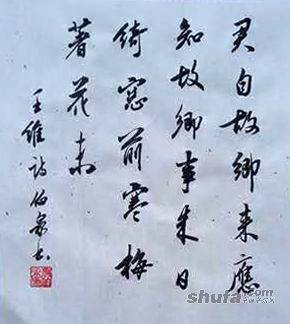 君自故鄉來應
知故鄉事来日
綺窓前寒梅
著花未
王維詩
shufa.com